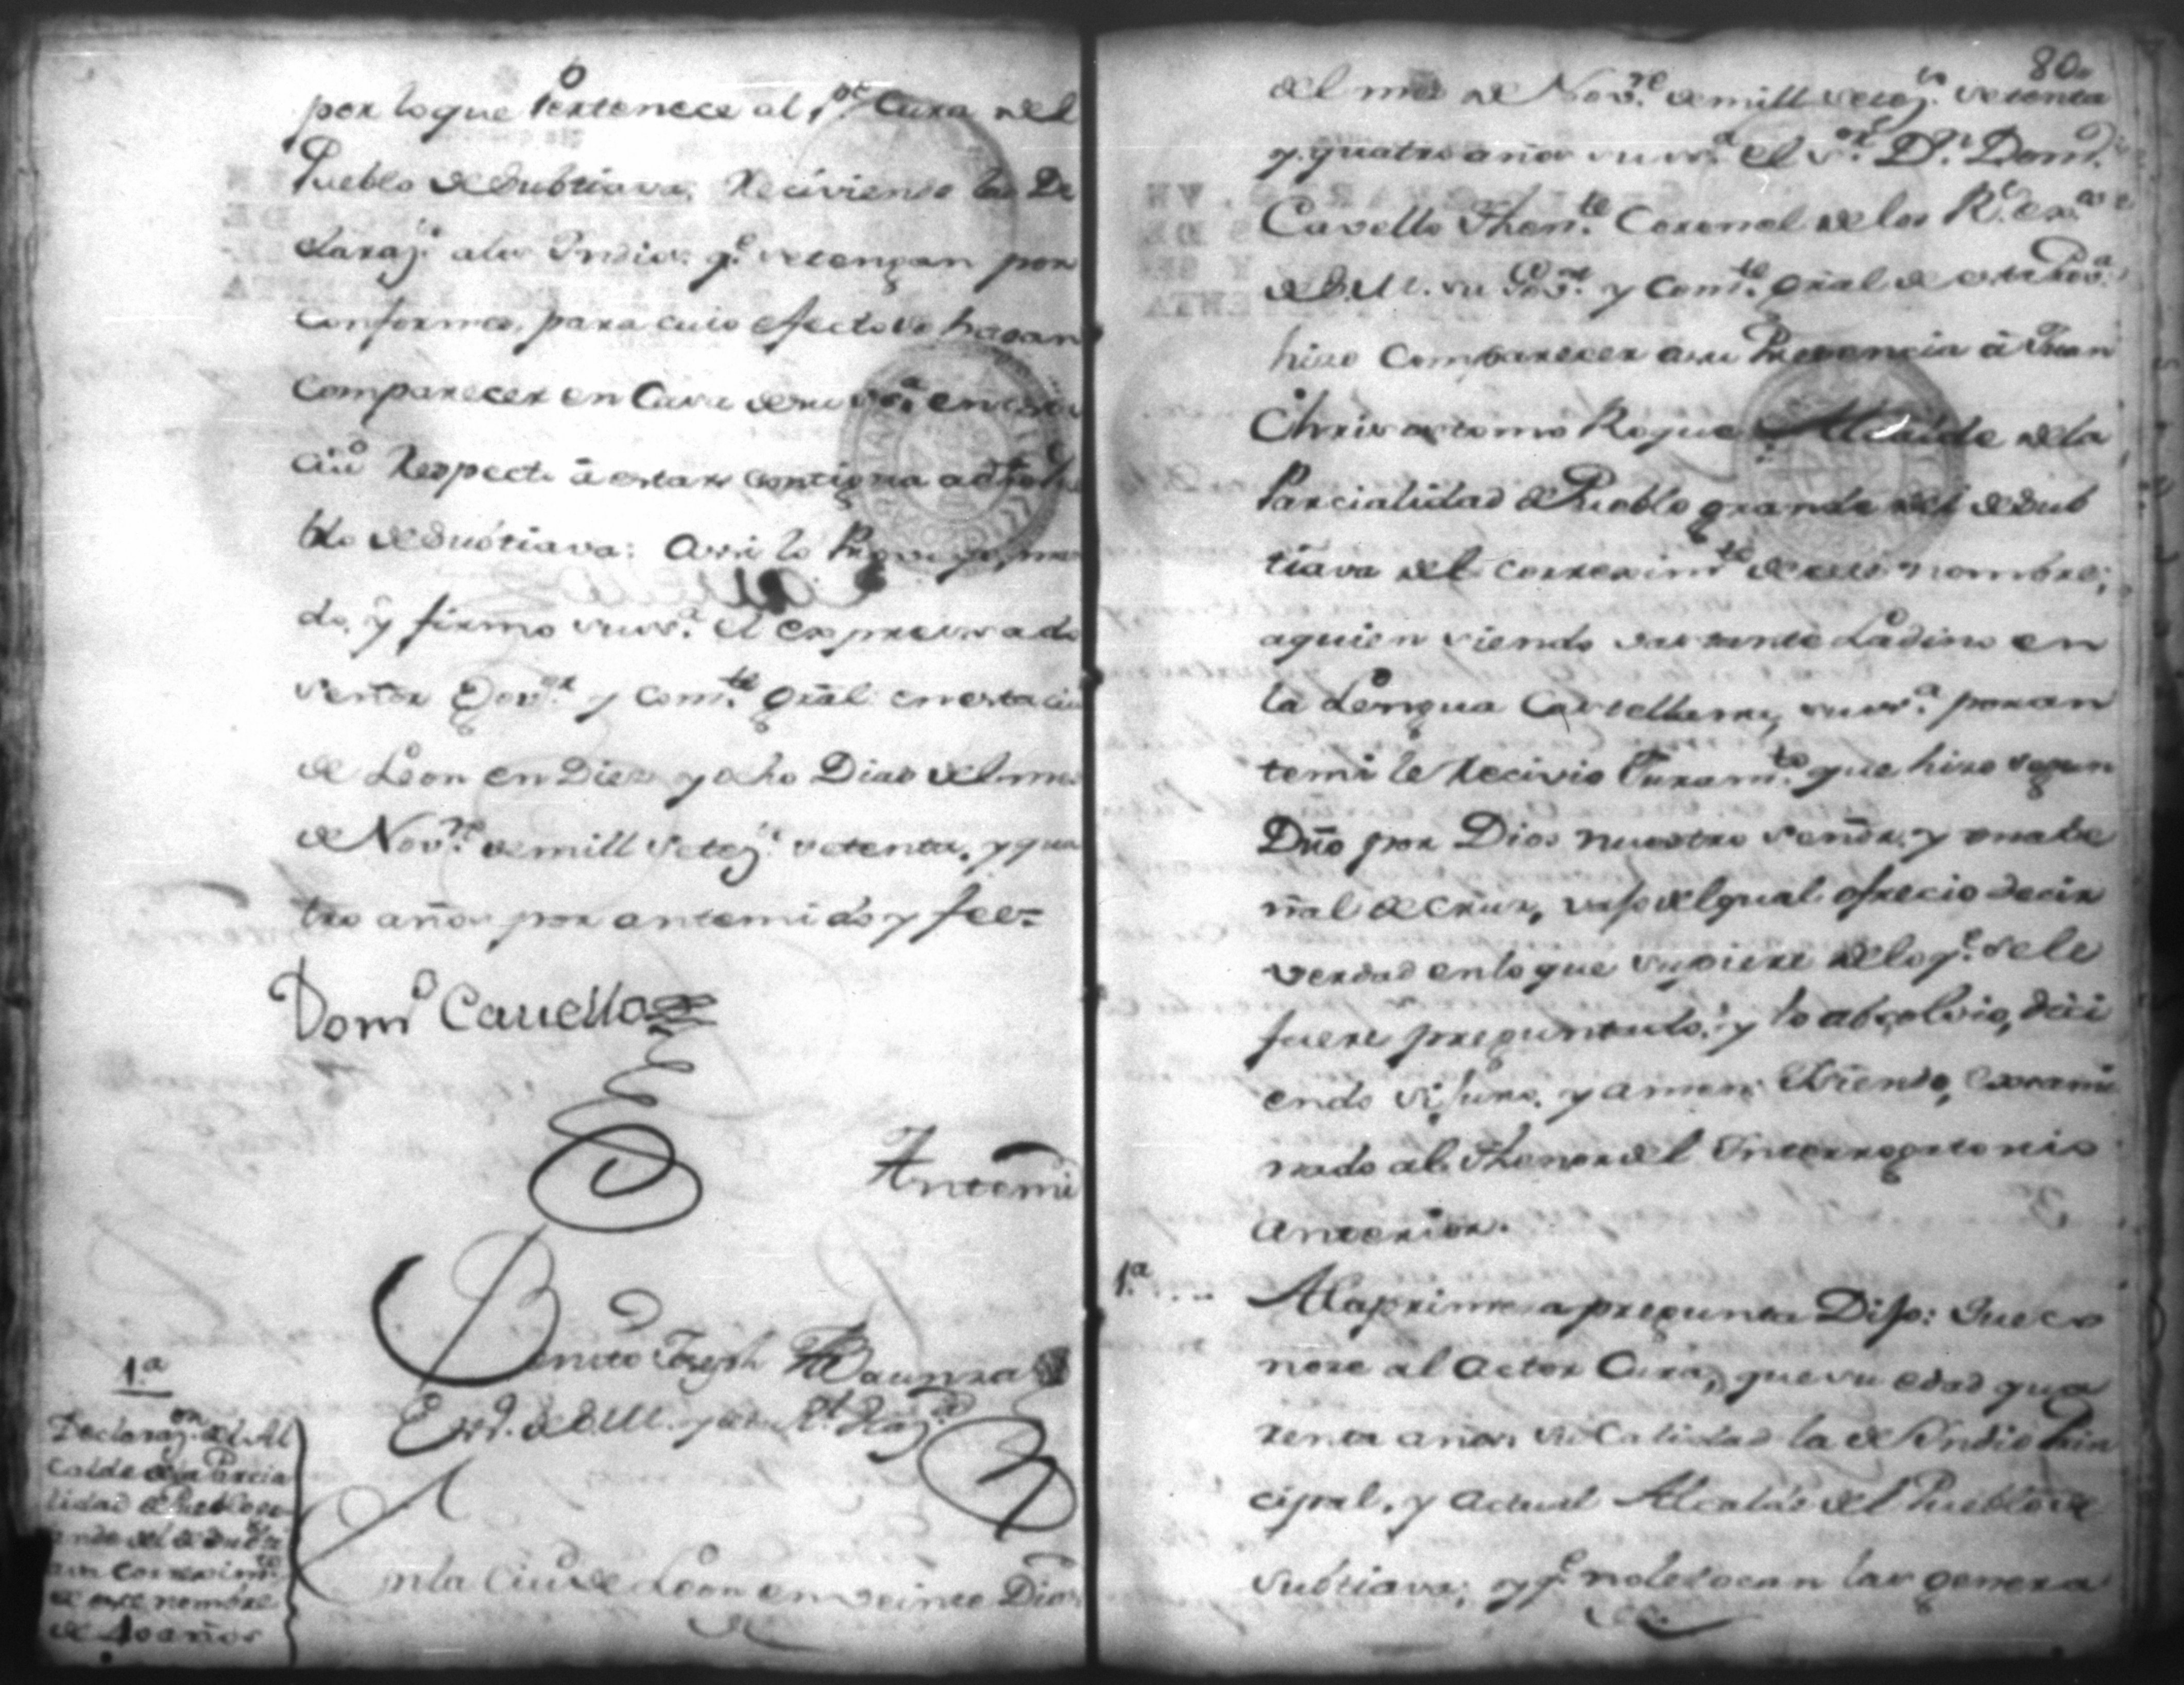 por loque Pertenece al P.e Cura del
Pueblo de Subtiava, Reciviendo las De
claraz.s alos Indios q.e setengan por
conforme, para cuio efecto se hagan
comparecer en Casa de su ss.a en esta
ciu.d Respecto â estar contigua
blo de Subtiava: Assi lo Proveyo, man
do, y firmo suss.a el expressado
Señor Gov.or y Com.te Gral. en esta ciu
de Leon en Diez y ocho Dias del mes
de Nov.re de mill setez.s setenta, y qua
tro años por antemi doy fee=
Dom.o Cavello
Antemi
Benito Joseph
Ess.no de S.M. y de su R.l Haz.da
1.a
Declaraz.on del Al
calde de la Parcia
lidad de Pueblo gra
nde del de Subti
ava correxim.to
de este nombre
de 40 años
En la Ciu.d de Leon en veinte Dias
80.
del mes de Nov.re de mill setez.s setenta
y quatro años suss.a el S.or D.n Dom.o
Cavello Then.te Coronel de los R.s ex.tos
de S.M. su Gov.or y Com.te Gral de esta Prov.a
hizo comparecer asu Presencia â Juan
Chrisostomo Roque Alcalde de la
Parcialidad de Pueblo grande del de Sub
tiava del correxim.to de este nombre;
aquien siendo bastante Ladino en
la Lengua Castellana, suss.a por an
temi le Recivio Juram.to que hizo segun
Dño por Dios nuestro Señor, y una se
ñal de Cruz, vajo del qual ofrecio decir
verdad en lo que supiere de loq.e sele
fuere preguntado, y lo absolvio, dici
endo si juro, y amen: Siendo, Exsami
nado al Thenor del Interrogatorio
anterior.
1.a .... Ala primera pregunta Dijo: Que co
nose al Actor Cura, que su edad qua
renta años su Calidad la de Indio Prin
cipal, y actual Alcalde del Pueblo de
Subtiava; y q.e no le tocan las genera